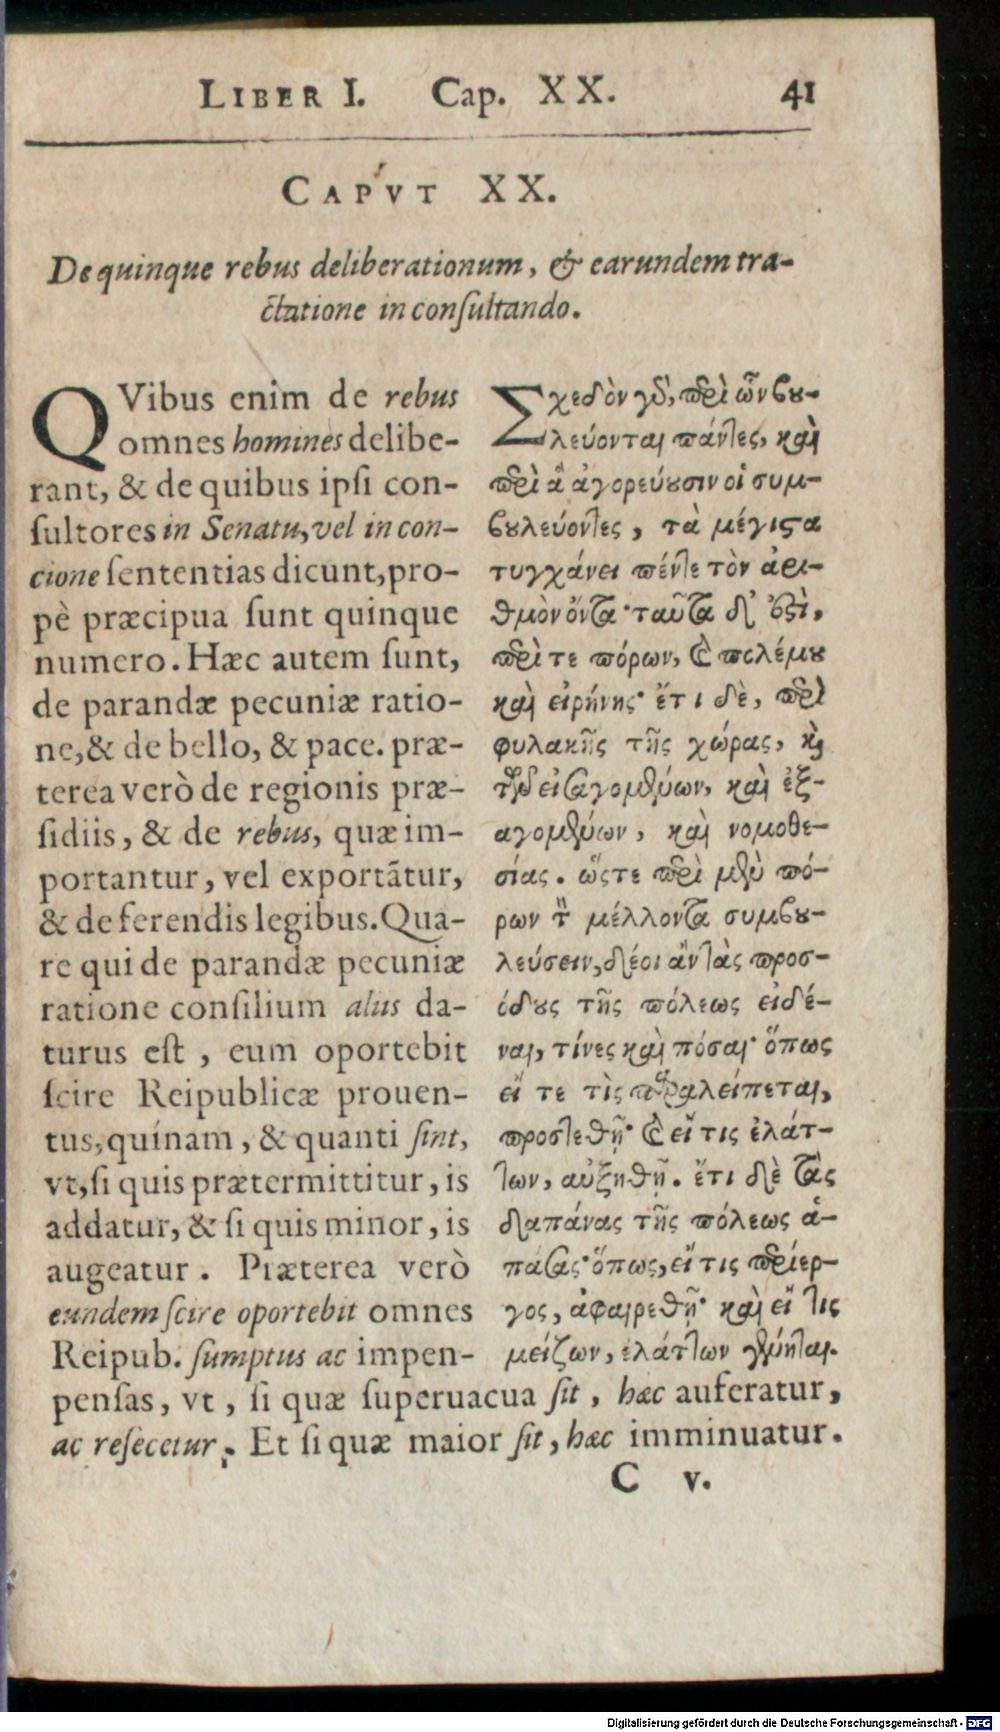 LIBER I. Cap. XX. 41
CAPVT XX.
De quinque rebus deliberationum, & earundem tra-
ctatione in conſultando.
QVibus enim de rebus
omnes homines delibe-
rant, & de quibus ipſi con-
ſultores in Senatu, vel in con-
cione ſententias dicunt, pro-
pè præcipua ſunt quinque
numero. Hæc autem ſunt,
de parandæ pecuniæ ratio-
ne, & de bello, & pace. præ-
terea verò de regionis præ-
ſidiis, & de rebus, quæ im-
portantur, vel exportātur,
& de ferendis legibus. Qua-
re qui de parandæ pecuniæ
ratione conſilium aliis da-
turus eſt, eum oportebit
ſcire Reipublicæ prouen-
tus, quínam, & quanti ſint,
vt, ſi quis prætermittitur, is
addatur, & ſi quis minor, is
augeatur. Præterea verò
eundem ſcire oportebit omnes
Reipub. ſumptus ac impen-
penſas, vt, ſi quæ ſuperuacua ſit, hæc auferatur,
ac reſecetur. Et ſi quæ maior ſit, hæc imminuatur.
Σχεδὸν γὰρ, περὶ ὧν βου-
λεύονται πάντες, καὶ
περὶ ἃ ἀγορεύουσιν οἱ συμ-
βουλεύοντες, τὰ μέγιστα
τυγχάνει πέντε τὸν ἀρι-
θμὸν ὄντα· ταῦτα δ' ἐστὶ,
περὶ τε πόρων, καὶ πολέμου
καὶ εἰρήνης· ἔτι δὲ, περὶ
φυλακῆς τῆς χώρας, καὶ
τῶν εἰσαγομένων, καὶ ἐξ-
αγομένων, καὶ νομοθε-
σίας. ὥστε περὶ μὲν πό-
ρων τὸν μέλλοντα συμβου-
λεύσειν, δέοι ἂν τὰς προσ-
όδους τῆς πόλεως εἰδέ-
ναι, τίνες καὶ πόσαι· ὅπως
εἴ τε τὶς παραλείπεται,
προστεθῇ· καὶ εἴ τις ἐλάτ-
των, αὐξηθῇ. ἔτι δὲ τὰς
δαπάνας τῆς πόλεως ἁ-
πάσας· ὅπως, εἴ τις περίερ-
γος, ἀφαιρεθῇ· καὶ εἴ τις
μείζων, ἐλάττων γένηται.
C v.
Digitalisierung gefördert durch die Deutsche Forschungsgemeinschaft - DFG